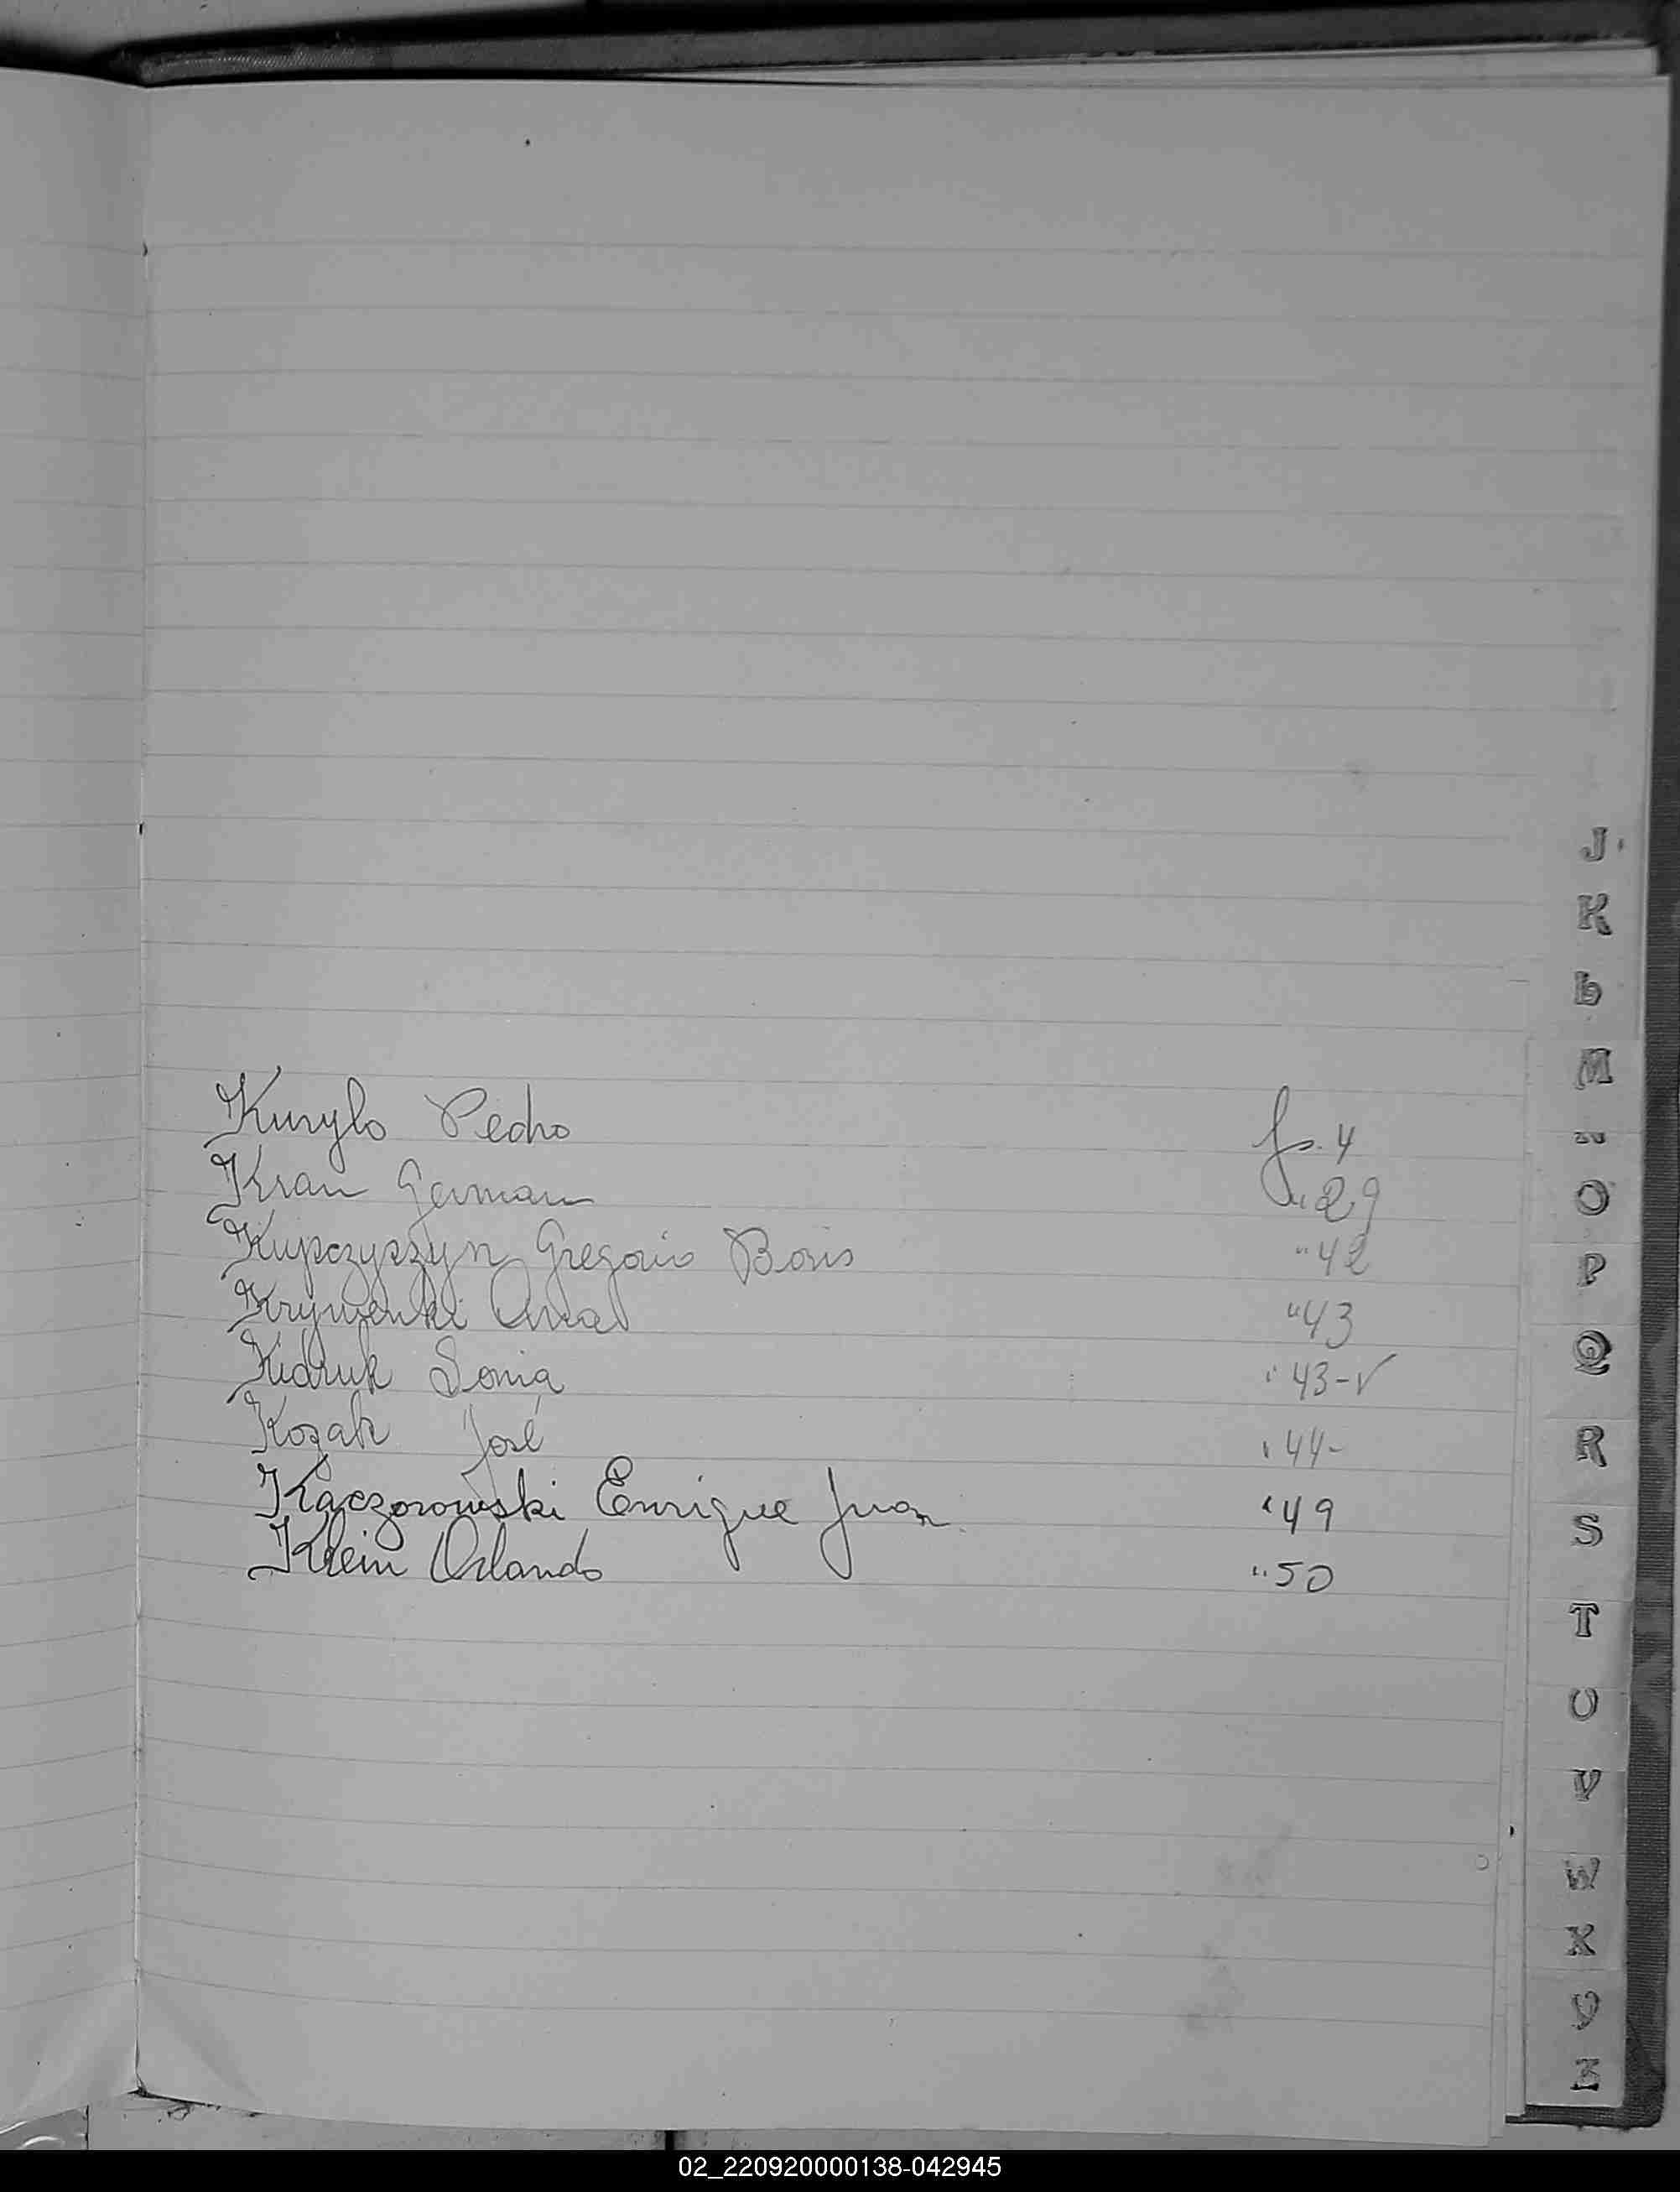 Kurylo Pedro fs. 4
Kran German " 29
Kupczyszyn Gregorio Boris " 42
Krywenki " 43
Kidruk Sonia " 43-v
Kozak José " 44-
Kaczorowski Enrique Juan " 49
Klein Orlando " 50
J
K
L
M
N
O
P
Q
R
S
T
U
V
W
X
Y
Z
02_220920000138-042945